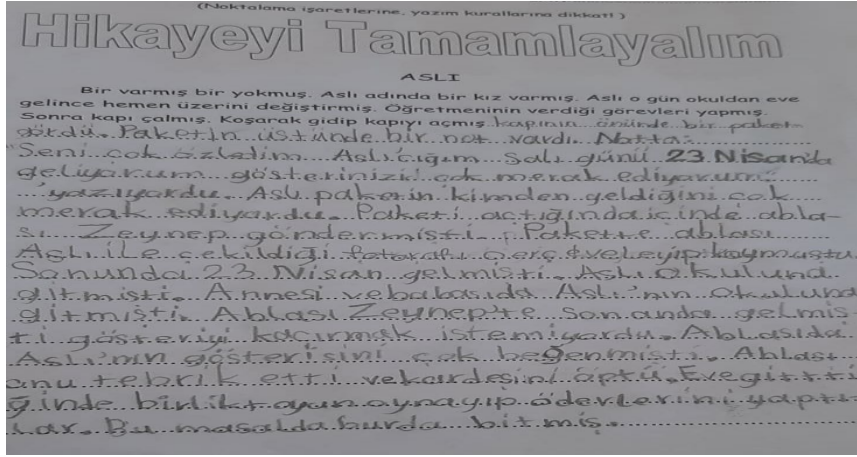 (Noktalama işaretlerine, yazım kurallarına dikkat! )
Hikayeyi Tamamlayalım
ASLI
Bir varmış bir yokmuş. Aslı adında bir kız varmış. Aslı o gün okuldan eve
gelince hemen üzerini değiştirmiş. Öğretmeninin verdiği görevleri yapmış.
Sonra kapı çalmış. Koşarak gidip kapıyı açmış kapının önünde bir paket
gördü. Paketin üstünde bir not vardı. Notta:
"Seni çok özledim Aslı'cığım Salı günü 23 Nisan'da
geliyorum gösterinizi çok merak ediyorum"
yazıyordu. Aslı paketin kimden geldiğini çok
merak ediyordu. Paketi açtığında içinde abla-
sı Zeynep göndermişti. Pakette ablası
Aslı ile çekildiği fotoğrafı çerçeveleyip koymuştu.
Sonunda 23 Nisan gelmişti. Aslı okuluna
gitmişti. Annesi ve babasıda Aslı'nın okuluna
gitmişti. Ablası Zeynep'te son anda gelmiş-
ti gösteriyi kaçırmak istemiyordu. Ablasıda
Aslı'nın gösterisini çok beğenmişti. Ablası
onu tebrik etti ve kardeşini öptü. Eve gittti
ğinde birlikt oyun oynayıp ödevlerini yaptı
lar. Bu masalda burda bitmiş.